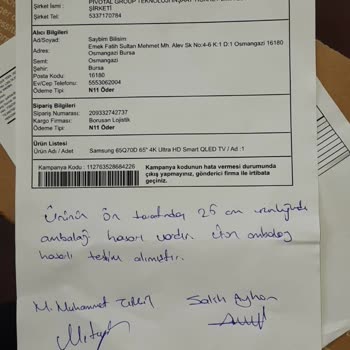 PIVOTAL GROUP TEKNOLOJİ
Şirket İsmi : ŞİRKETİ
Şirket Tel: 5337170784
Alıcı Bilgileri
Ad/Soyad: Saybim Bilisim
Adres: Emek Fatih Sultan Mehmet Mh. Alev Sk No:4-6 K:1 D:1 Osmangazi 16180
Osmangazi Bursa
Semt: Osmangazi
Şehir: Bursa
Posta Kodu: 16180
Ev/Cep Telefonu: 5553062004
Ödeme Tipi: N11 Öder
Sipariş Bilgileri
Sipariş Numarası: 209332742737
Kargo Firması: Borusan Lojistik
Ödeme Tipi: N11 Öder
Ürün Listesi
Ürün Adı / Adet Samsung 65Q70D 65" 4K Ultra HD Smart QLED TV / Ad :1
Kampanya Kodu : 112763528684226
Kampanya kodunun hata vermesi durumunda
çıkış yapmayınız, gönderici firma ile irtibata
geçiniz.
Ürünün ön tarafında 25 cm uzunluğunda
ambalaj hasarı vardır. Ürün ambalaj
hasarlı teslim alınmıştır.
M. Muhammet Salih Ayhan